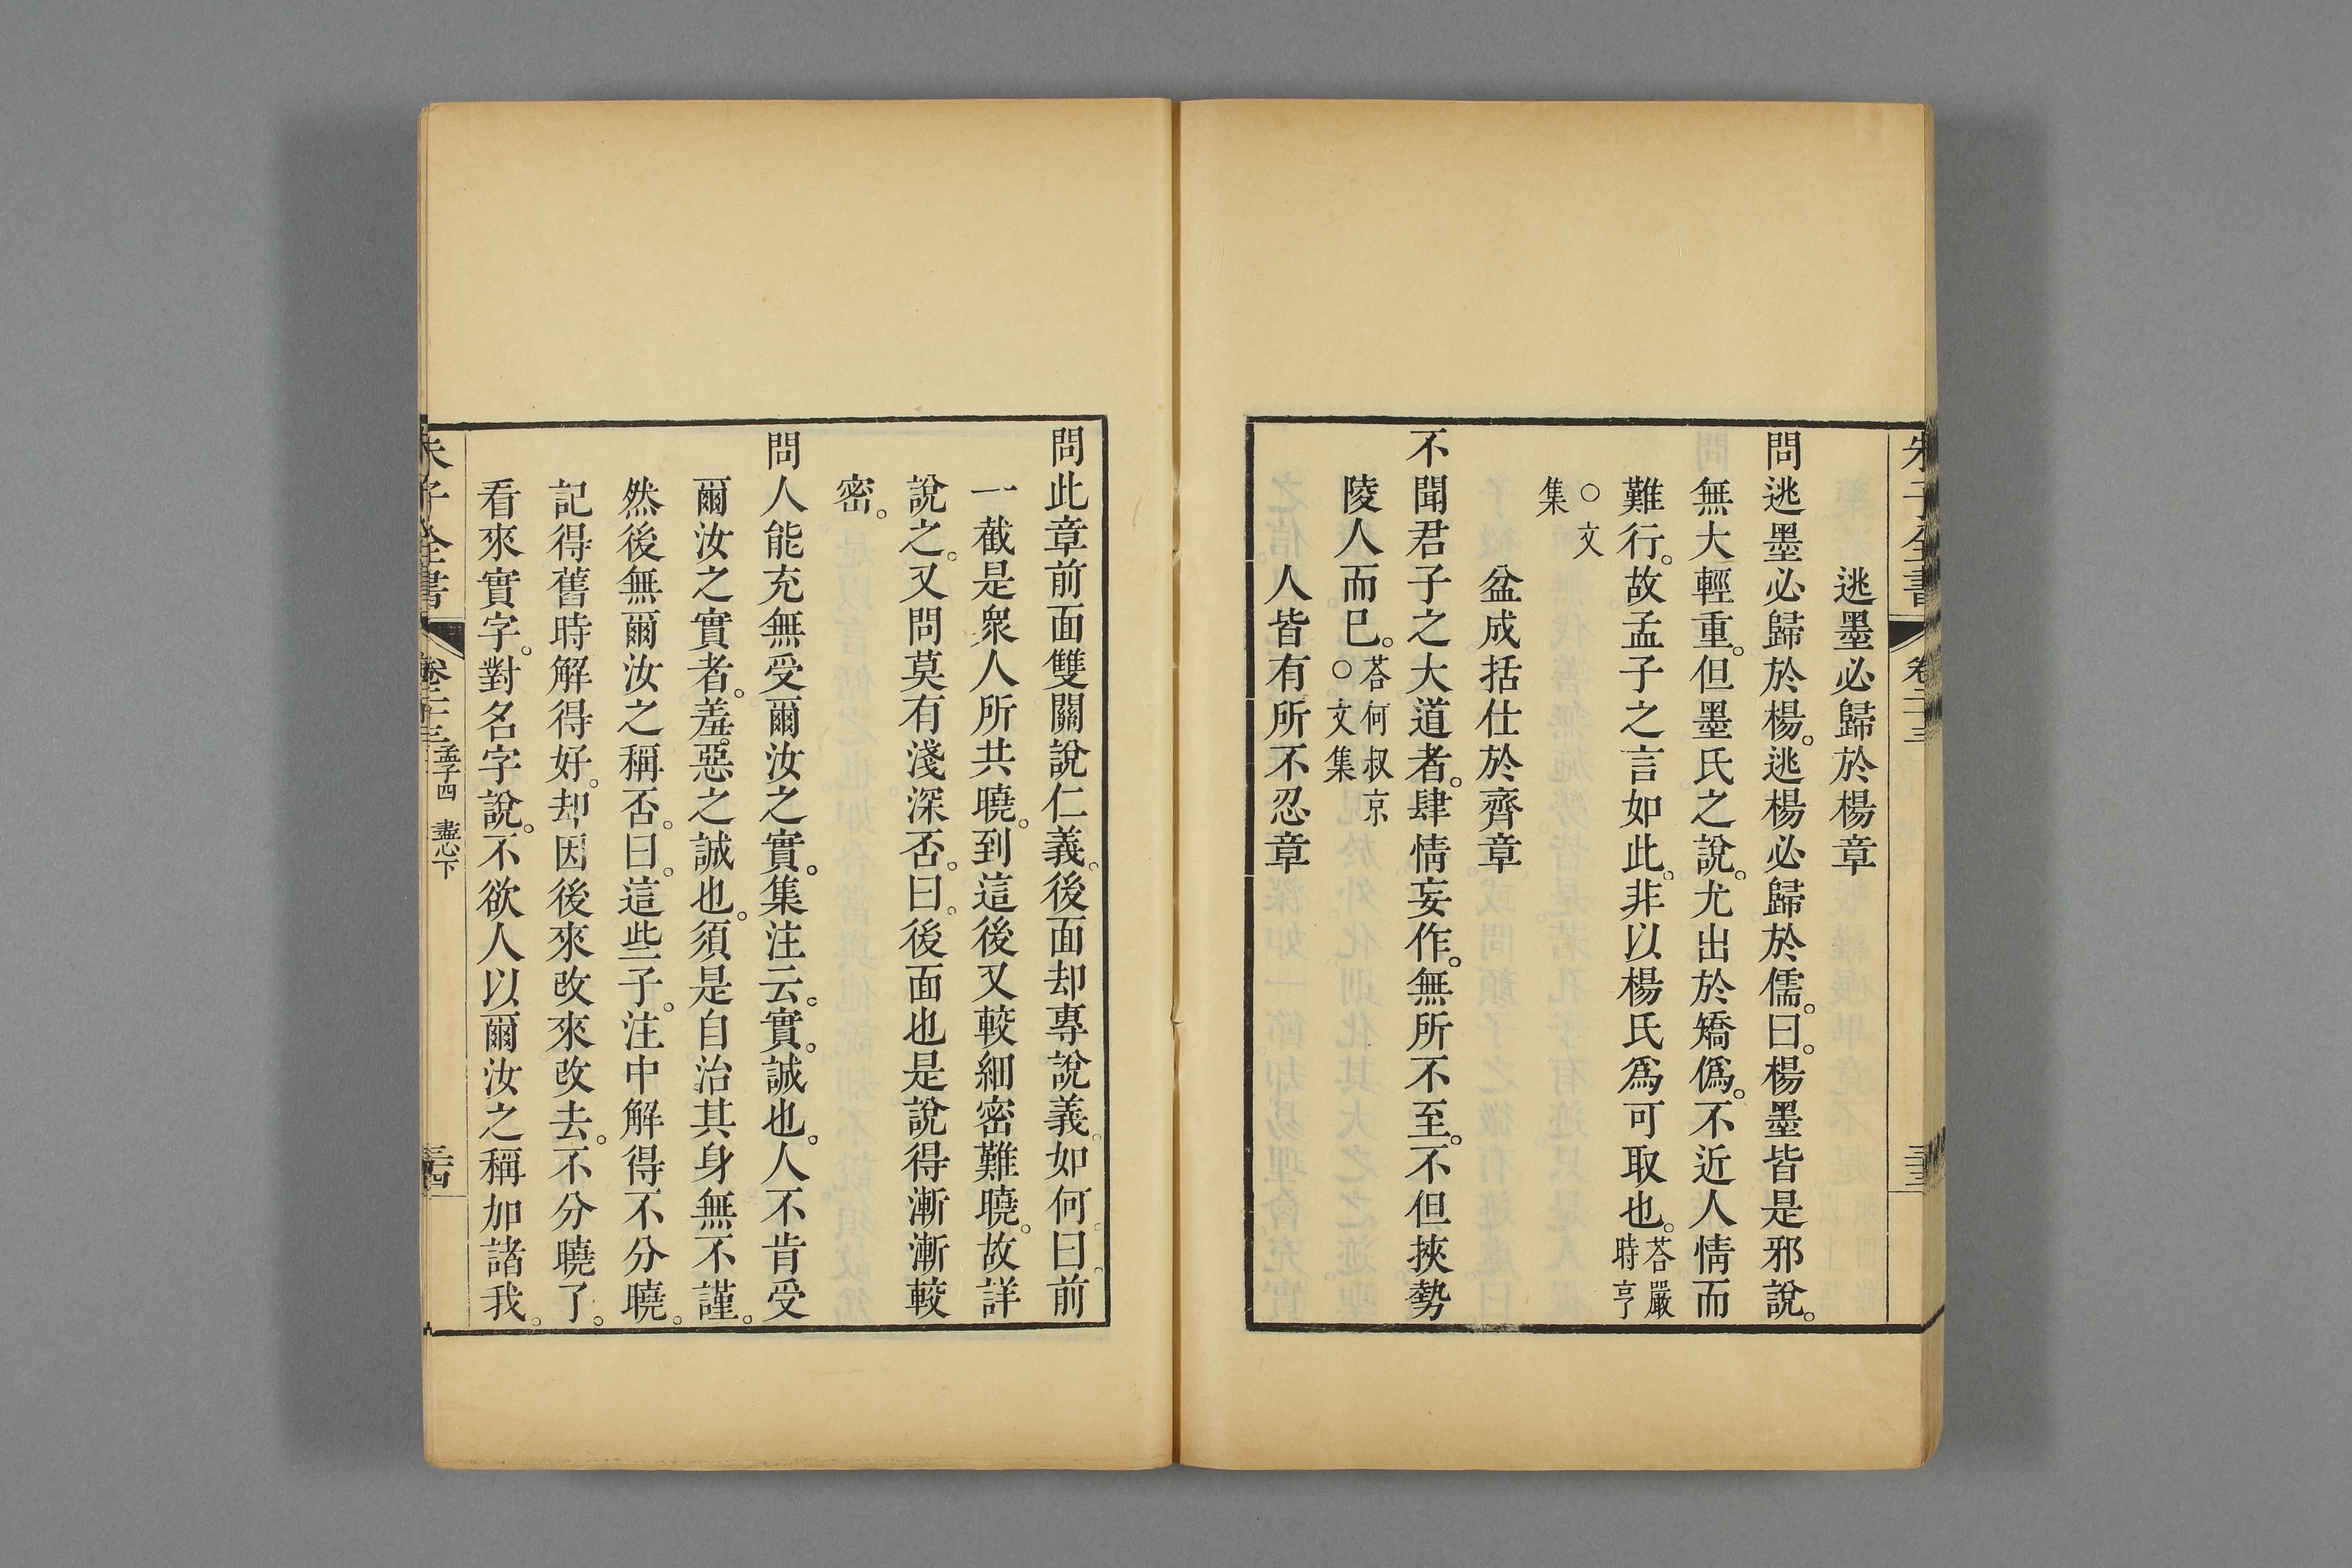 朱子全書 卷二十三 三十三
逃墨必歸於楊章
問逃墨必歸於楊。逃楊必歸於儒。曰。楊墨皆是邪說。
無大輕重。但墨氏之說。尤出於矯僞。不近人情而
難行。故孟子之言如此。非以楊氏爲可取也。荅嚴時亨
○文集
盆成括仕於齊章
不聞君子之大道者。肆情妄作。無所不至。不但挾勢
陵人而已。荅何叔京○文集
人皆有所不忍章
問此章前面雙關說仁義。後面却專說義。如何。曰。前
一截是衆人所共曉。到這後又較細密難曉。故詳
說之。又問莫有淺深否。曰。後面也是說得漸漸較
密。
問人能充無受爾汝之實。集注云。實。誠也。人不肯受
爾汝之實者。羞惡之誠也。須是自治其身無不謹。
然後無爾汝之稱否。曰。這些子。注中解得不分曉。
記得舊時解得好。却因後來改來改去。不分曉了。
看來實字。對名字說。不欲人以爾汝之稱加諸我。
朱子全書 卷二十三 孟子四 盡心下 三十四